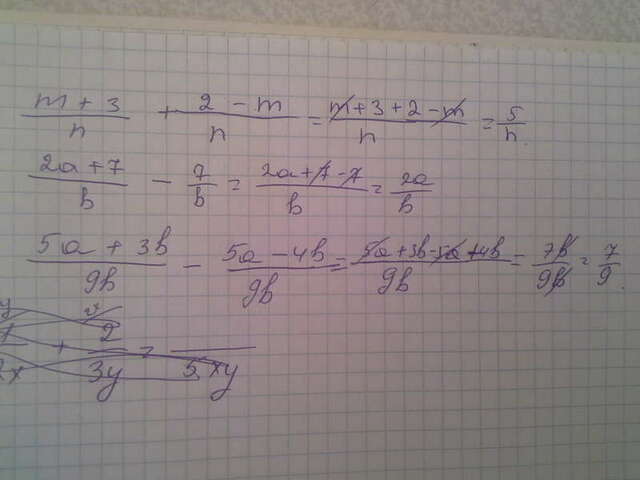 (m + 3)/n + (2 - m)/n = (m + 3 + 2 - m)/n = 5/n
(2a + 7)/b - 7/b = (2a + 7 - 7)/b = 2a/b
(5a + 3b)/9b - (5a - 4b)/9b = (5a + 3b - 5a + 4b)/9b = 7b/9b = 7/9